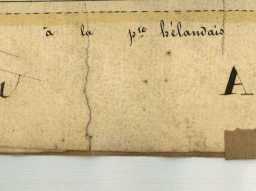 à la p.ce hélandais
A